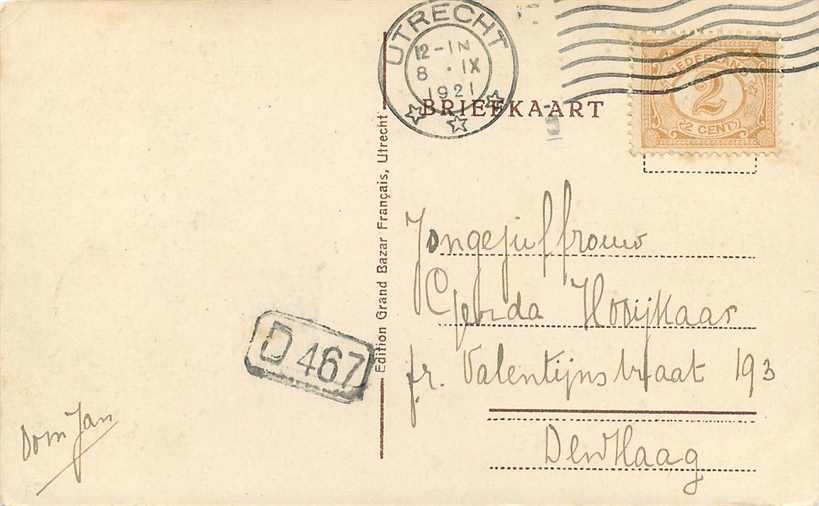 UTRECHT
12-1N
8 · IX
1921
BRIEFKAART
NEDERLAND
2
2 CENT
Edition Grand Bazar Français, Utrecht
Jongejuffrouw
Gerda Hooijkaas
fr. Valentijnstraat 193
Den Haag
D 467
Oom Jan